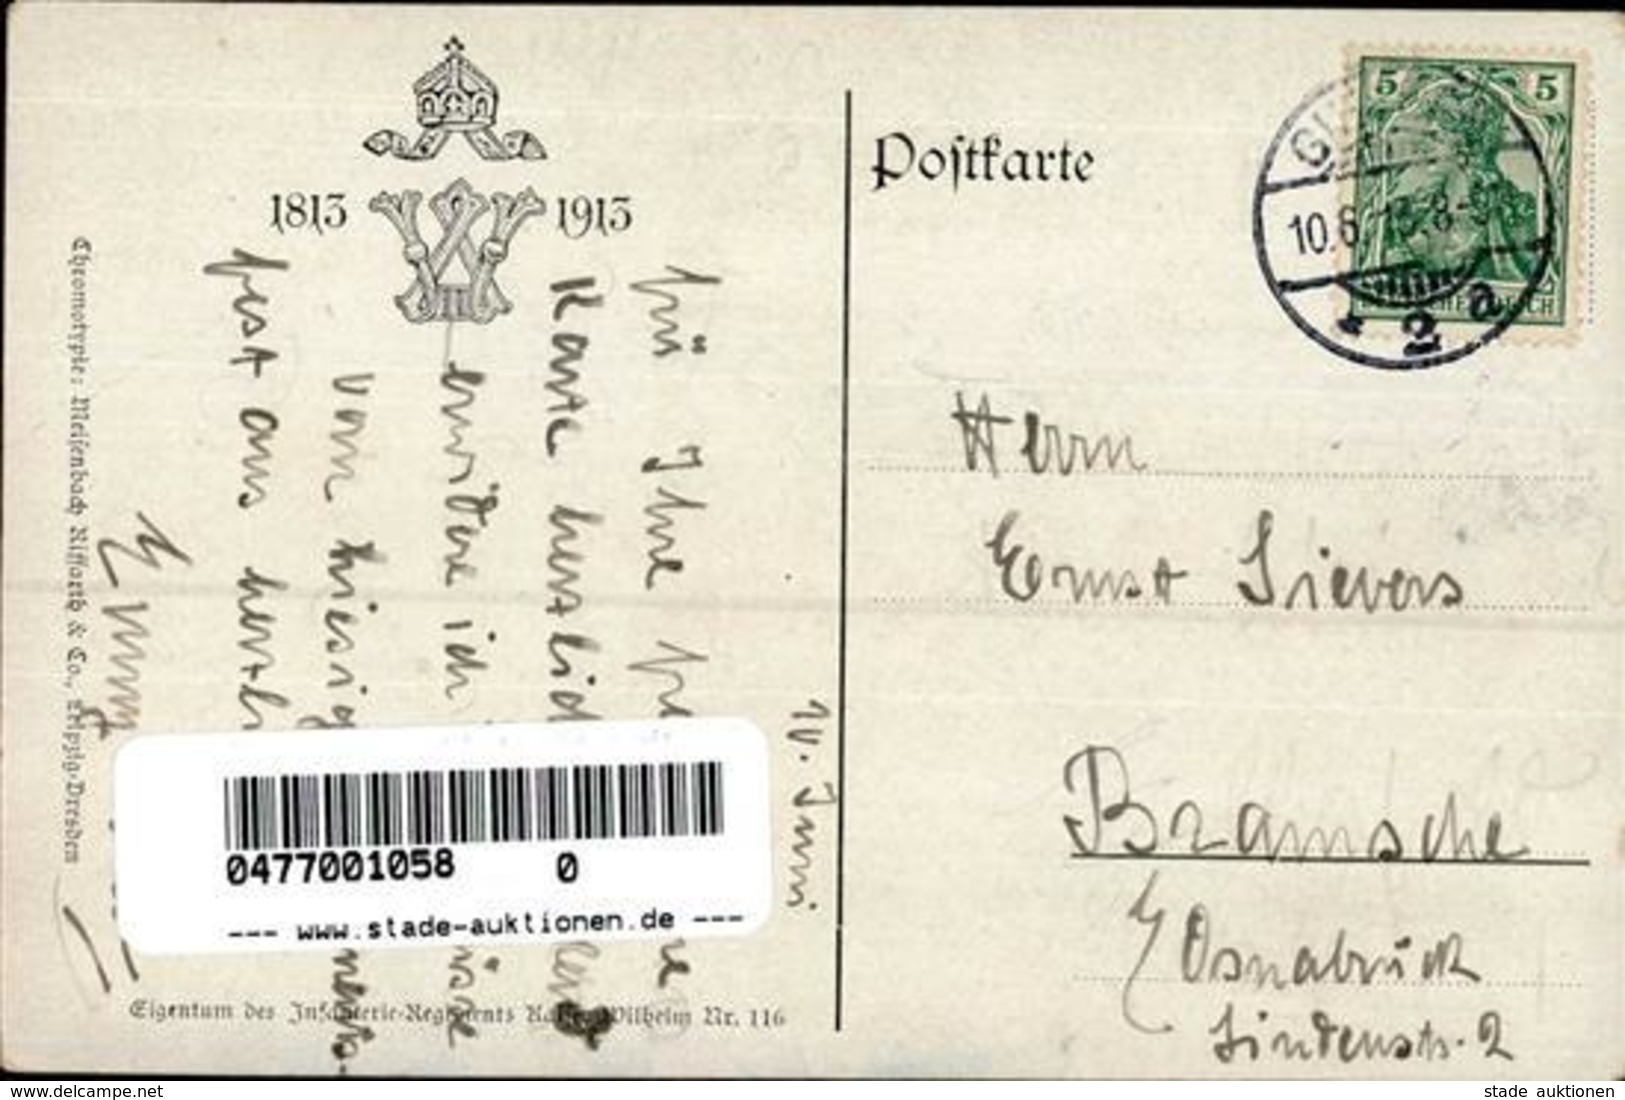 1813 1913
Postkarte
5 5
10.6.13.8-9
* 2 a
Herrn
Ernst Sievers
Bramsche
Osnabrück
Lindenstr. 2
10. Juni
für Ihre
Karte herzlich
erwidere ich
vom hiesig
fest aus herzli
Chromotypie: Meisenbach Riffarth & Co., Leipzig-Dresden
Eigentum des Infanterie-Regiments Kaiser Wilhelm Nr. 116
0477001058 0
--- www.stade-auktionen.de ---
www.delcampe.net
stade auktionen